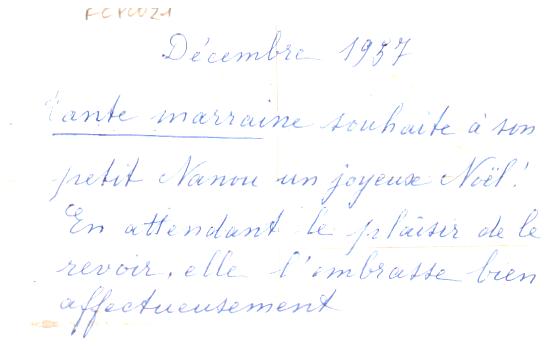 Décembre 1957
tante marraine souhaite à son
petit Nanou un joyeux Noël!
En attendant le plaisir de le
revoir, elle l'embrasse bien
affectueusement